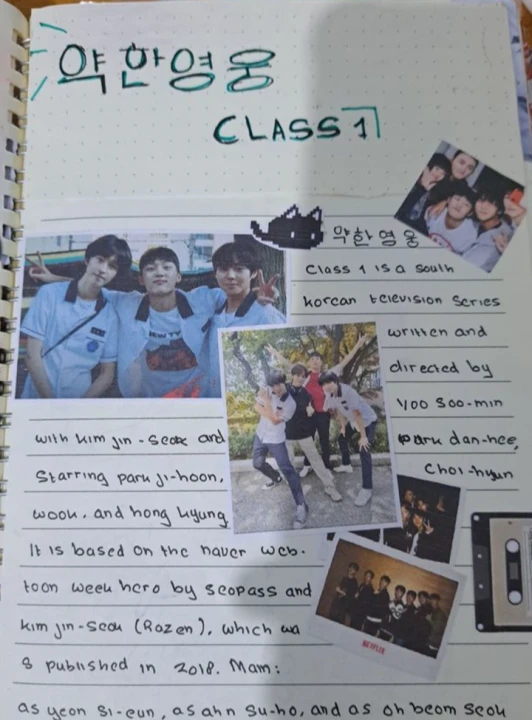 약한영웅
CLASS 1
약한영웅
Class 1 is a South
Korean television Series
written and
directed by
Yoo Soo-min
with Kim Jin-Seok and park dan-hee,
Starring park ji-hoon, Choi-hyun
wook, and hong kyung
It is based on the naver web-
toon week hero by seopass and
Kim Jin-Seok (Razen), which wa
s published in 2018. Mam:
as yeon si-eun, as ahn su-ho, and as oh beom seok
NETFLIX